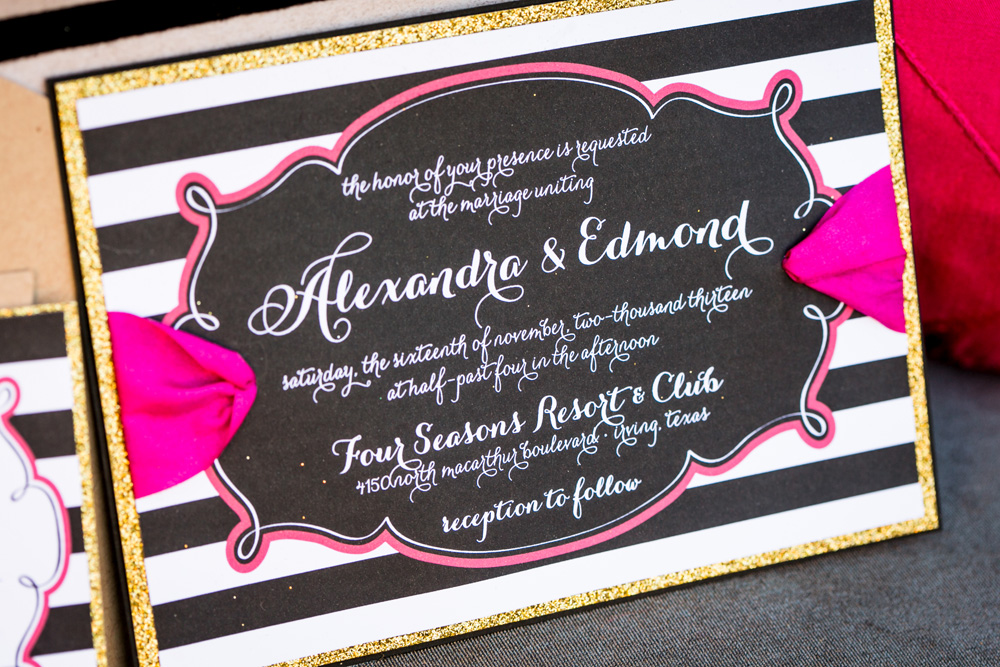 the honor of your presence is requested
at the marriage uniting
Alexandra & Edmond
saturday, the sixteenth of november, two-thousand thirteen
at half-past four in the afternoon
Four Seasons Resort & Club
4150 north macarthur boulevard · irving, texas
reception to follow